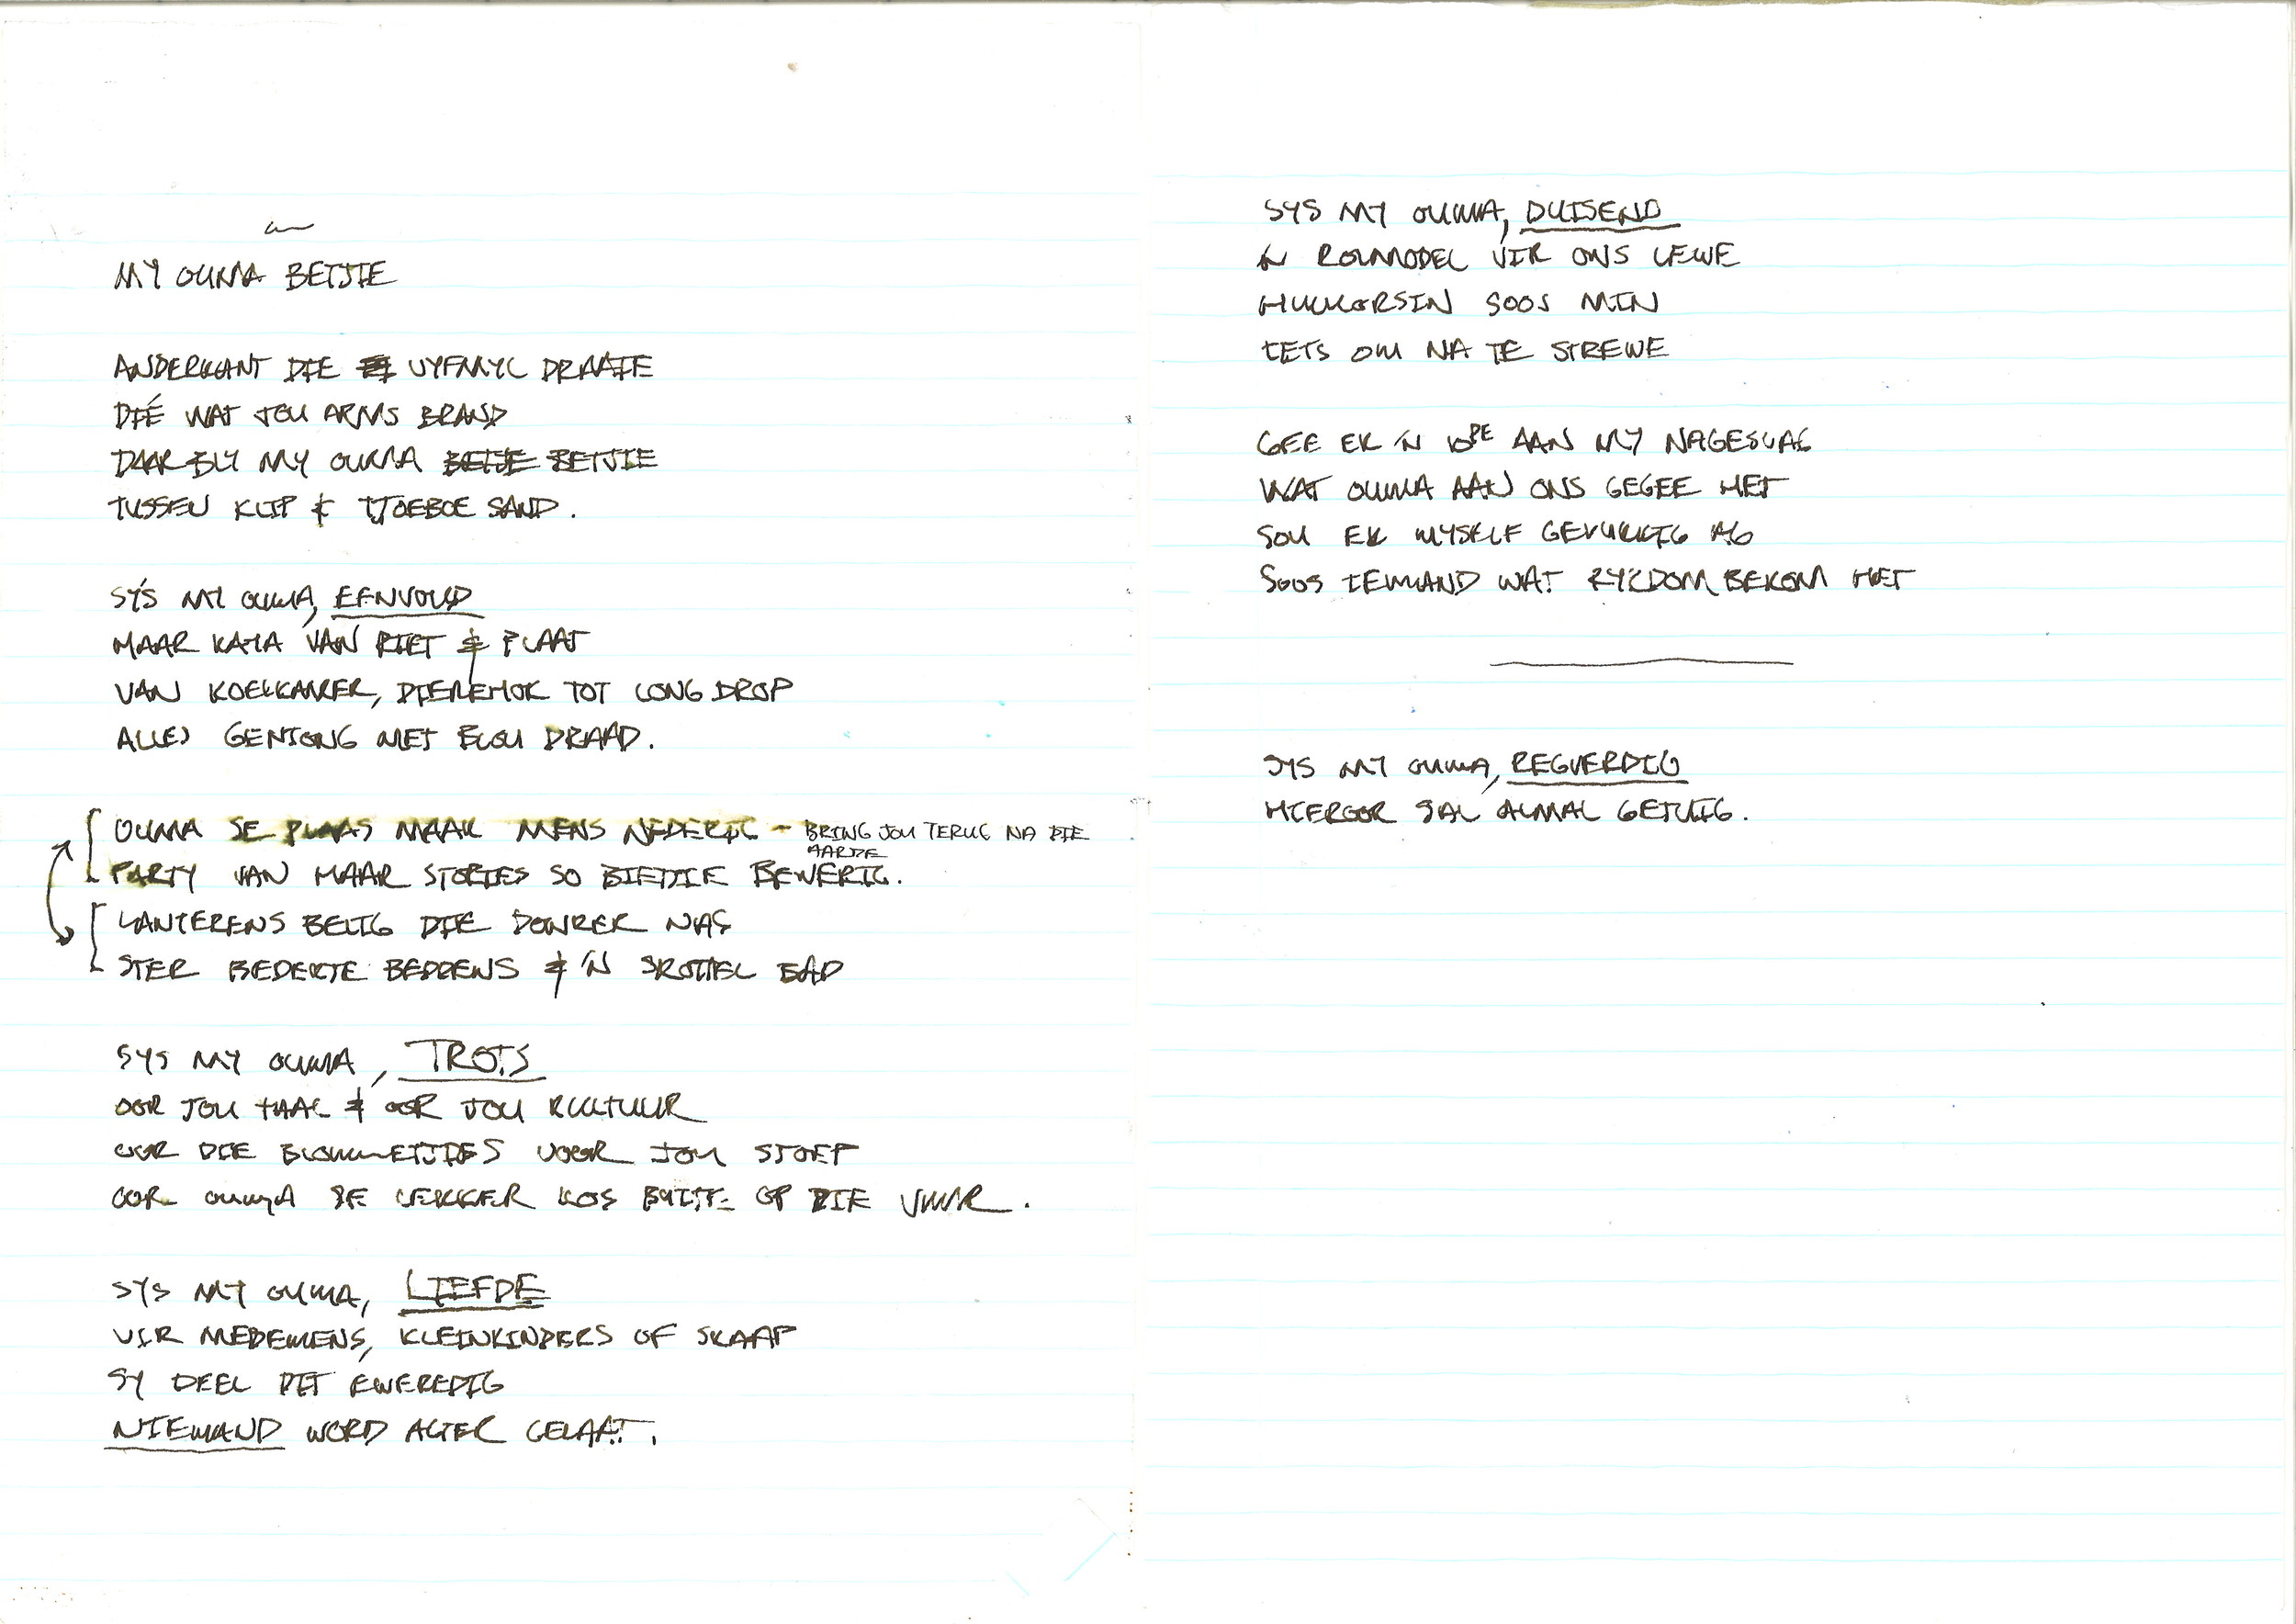 MY OUMA BETJIE
ANDERKANT DIE VYFMYL DRAAIE
DIÉ WAT JOU ARMS BRAND
DAAR BLY MY OUMA BETJIE BETJIE
TUSSEN KLIP & TJOEBOE SAND.
SY'S MY OUMA, EENVOUD
MAAR KAIA VAN RIET & PLAAT
VAN KOELKAMER, DIEREHOK TOT LONG DROP
ALLES GEMIONG MET BLOU DRAAD.
OUMA SE PLAAS MAAK MENS NEDERIG - BRING JOU TERUG NA DIE
AARDE
PARTY VAN MAAR STORIES SO BIETJIE BEWERIG.
LANTERENS BELIG DIE DONKER NAG
STER BEDEKTE BEDDENS & 'N SKOTTEL BAD
SYS MY OUMA, TROTS
OOR JOU TAAL & OOR JOU KULTUUR
OOR DIE BLOMMETJIES VOOR JOU STOEP
OOR OUMA SE LEKKER KOS BUITE OP DIE VUUR.
SYS MY OUMA, LIEFDE
VIR MEDEMENS, KLEINKINDERS OF SKAAP
SY DEEL DIT EWEREDIG
NIEMAND WORD AGTER GELAAT.
SYS MY OUMA, DUISEND
'N ROLMODEL VIR ONS LEWE
HULKERSIN SOOS MIN
IETS OM NA TE STREWE
GEE EK 'N 10DE AAN MY NAGESLAG
WAT OUMA AAN ONS GEGEE HET
SOU EK MYSELF GELUKKIG AG
SOOS IEMAND WAT RYKDOM BEKOM HET
SYS MY OUMA, REGVERDIG
HIEROOR SAL ALMAL GETUIG.